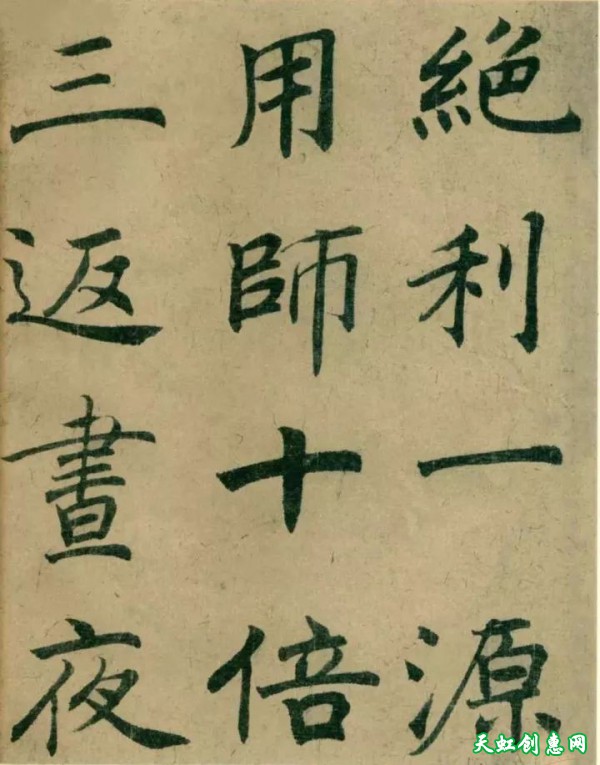 絕利一源
用師十倍
三返晝夜
天虹创惠网